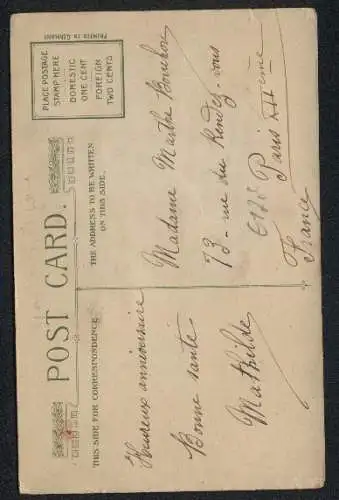 POST CARD.
PRINTED IN GERMANY
PLACE POSTAGE
STAMP HERE
DOMESTIC
ONE CENT
FOREIGN
TWO CENTS
THIS SIDE FOR CORRESPONDENCE
THE ADDRESS TO BE WRITTEN
ON THIS SIDE.
Heureux anniversaire
Bonne santé
Mathilde
Madame Marthe
73 - rue du Rendez-vous
Paris XIIème
France